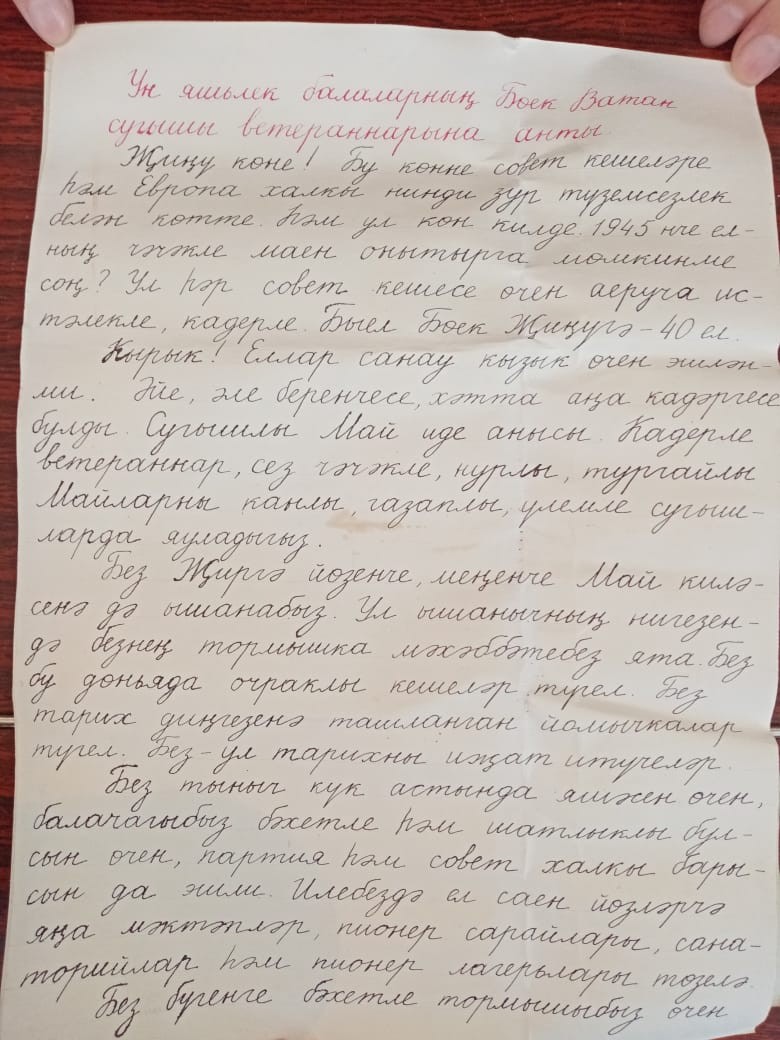 Ун яшьлек балаларның Бөек Ватан
сугышы ветераннарына анты.
Җиңү көне! Бу көнне совет кешеләре
һәм Европа халкы нинди зур түземсезлек
белән көтте. Һәм ул көн килде. 1945 нче ел-
ның чәчәкле маен онытырга мөмкинме
соң? Ул һәр совет кешесе өчен аеруча ис-
тәлекле, кадерле. Быел Бөек Җиңүгә - 40 ел.
Кырык! Еллар санау кызык өчен эшлән-
ми. Әйе, әле беренчесе, хәтта аңа кадәргесе
булды. Сугышлы Май иде анысы. Кадерле
ветераннар, сез чәчәкле, нурлы, тургайлы
Майларны канлы, газаплы, үлемле сугыш-
ларда яуладыгыз.
Без Җиргә йөзенче, меңенче Май килә-
сенә дә ышанабыз. Ул ышанычның нигезен-
дә безнең тормышка мәхәббәтебез ята. Без
бу дөньяда очраклы кешеләр түгел. Без
тарих диңгезенә ташланган йомычкалар
түгел. Без - ул тарихны иҗат итүчеләр.
Без тыныч күк астында яшәсен өчен,
балачагыбыз бәхетле һәм шатлыклы бул-
сын өчен, партия һәм совет халкы бары-
сын да эшли. Илебездә ел саен йөзләрчә
яңа мәктәпләр, пионер сарайлары, сана-
торийлар һәм пионер лагерьлары төзелә.
Без бүгенге бәхетле тормышыбыз өчен